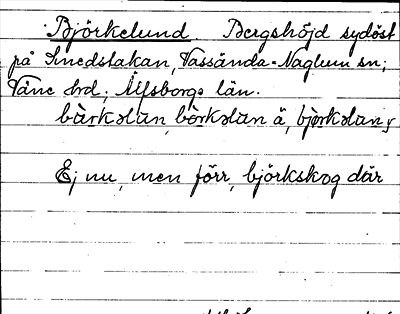 Björkelund. Bergshöjd sydöst
på Smedstakan, Vassända-Naglum sn;
Väne hd; Älfsborgs län.
Ej nu, men förr, björkskog där